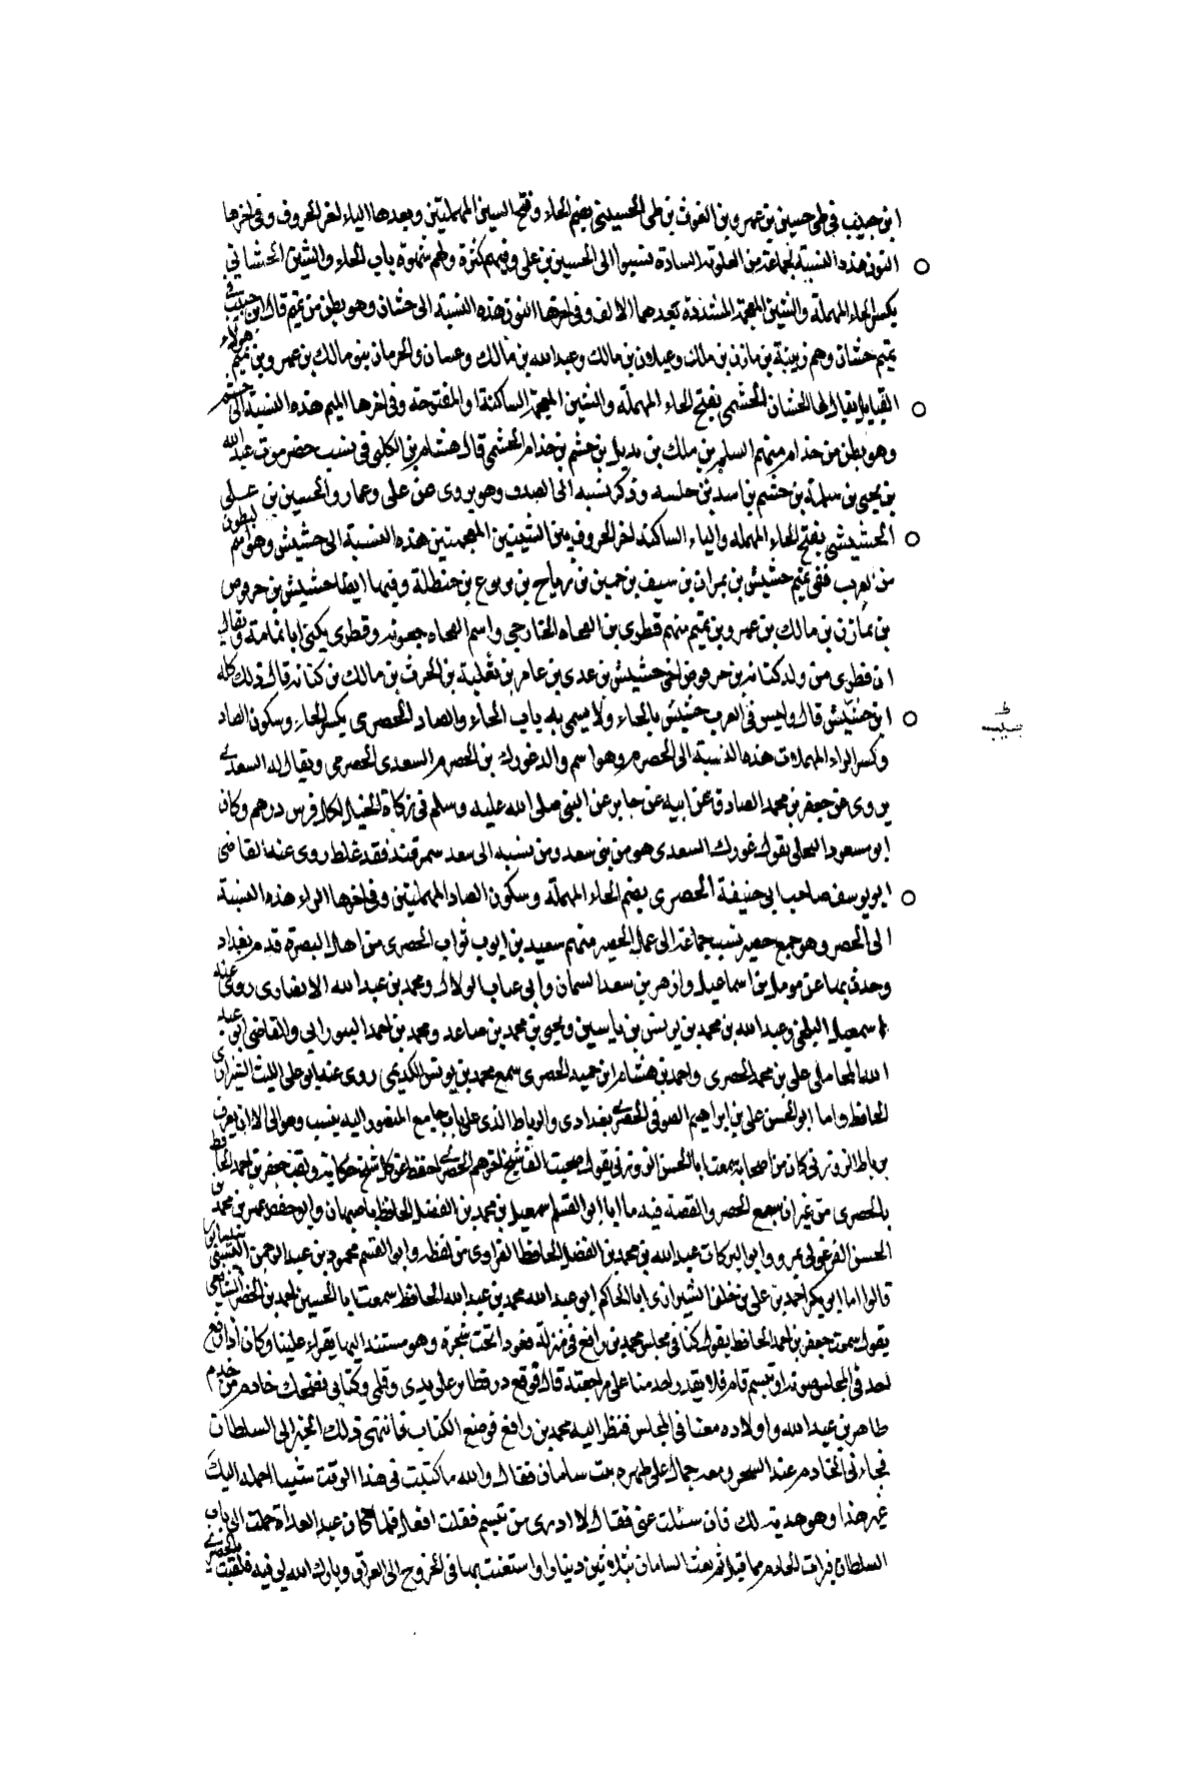 ابن حبيب في طي حسين بن عمرو بن الغوث بن طي الحسيني بضم الحاء وفتح السين المهملتين وبعدها الياء اخر الحروف وفي اخرها
النون هذه النسبة لجماعة من العلوية السادة نسبوا الى الحسين بن علي وفيهم كثرة ولهم شهرة باب الحاء والشين الحشاني
بكسر الحاء المهملة والشين المعجمة المشددة بعدهما الالف وفي اخرها النون هذه النسبة الى حشان وهو بطن من تميم قال ابن حبيب في
تميم حشان وهم زبينة بن مازن بن ملك وعيلان بن مالك وعبد الله بن مالك وغسان والحرمان بنو مالك بن عمرو بن تميم هولاء
القبايل يقال لها الحشان الحشمي بفتح الحاء المهملة والشين المعجمة الساكنة او المفتوحة وفي اخرها الميم هذه النسبة الى حشم
وهو بطن من جذام منهم السلم بن ملك بن بديل بن حشم بن جذام الحشمي قال هشام بن الكلبي في نسب حضرموت عبد الله
بن يحيى بن سلمة بن حشم بن اسد بن حلسه وذكر نسبه الى الصدف وهو يروى عن علي وعمار والحسين بن علي
الحشيشي بفتح الحاء المهملة والياء الساكنة اخر الحروف بين الشينين المعجمتين هذه النسبة الى حشيش وهو اسم لبطون
من العرب ففي تميم حشيش بن نمران بن سيف بن حمير بن رياح بن يربوع بن حنظلة وفيها ايضا حشيش بن حرقوص
بن مازن بن مالك بن عمرو بن تميم منهم قطري بن الفجاه الخارجي واسم الفجاه جعونه وقطري يكنى ابا نعامة ويقال
ان قطري من ولد كنانه بن حرقوص اخي حشيش بن عدي بن عامر بن ثعلبة بن الحرث بن مالك بن كنانه قال ذلك كله
ابن حبيش قال وليس في العرب حشيش بالحاء ولا يسمى به باب الحاء والصاد الحصرمي بكسر الحاء وسكون الصاد
ط
حبيب
وكسر الراء المهملات هذه النسبة الى الحصرم وهو اسم والد غورك بن الحصرم السعدي الحصرمي ويقال له السعدي
يروي عن جعفر بن محمد الصادق عن ابيه عن جابر عن النبي صلى الله عليه وسلم في زكاة الخيل لكل فرس درهم وكان
ابو مسعود البجلي يقول غورك السعدي هو من بني سعد ومن نسبه الى سعد سمرقند فقد غلط روى عنه القاضي
ابو يوسف صاحب ابي حنيفة الحصري بضم الحاء المهملة وسكون الصاد المهملتين وفي اخرها الراء هذه النسبة
الى الحصر وهو جمع حصير نسب جماعة الى عمل الحصير منهم سعيد بن ايوب ثواب الحصري من اهل البصرة قدم بغداد
وحدث بها عن مومل بن اسماعيل وازهر بن سعد السمان وابي عتاب الدلال ومحمد بن عبد الله الانصاري روى عنه
اسمعيل البلخي وعبد الله بن محمد بن ياسين ويحيى بن محمد بن صاعد ومحمد بن احمد البوراني والقاضي ابو عبد
الله المحاملي علي بن محمد الحصري واحمد بن هشام ابن حميد الحصري سمع محمد بن يونس الكديمي روى عنه ابو علي الليث الشيرازي
الحافظ واما ابو الحسن علي بن ابراهيم الصوفي الحصري بغدادي والرباط الذي على باب جامع المنصور اليه ينسب وهو الى الان يعرف
برباط الزوزني كان من اصحابه سمعت ابا الحسن الزوزني يقول صحبت الف شيخ اخرهم الحصري احفظ عن كل شيخ حكاية ولقب جعفر بن احمد الحافظ
بالحصري من غير ان يسمع الحصر والقصة فيه ما انا ابو القسم اسمعيل بن محمد بن الفضل الحافظ باصبهان وابو حفص عمر بن محمد بن
الحسن الفرغولي بمرو وابو البركات عبد الله بن محمد بن الفضل الحافظ الفراوي من لفظه وابو القسم محمود بن عبد الرحمن البستي بنيسابور
قالوا انا ابو بكر احمد بن علي بن خلف الشيرازي انا الحاكم ابو عبد الله محمد بن عبد الله الحافظ سمعت ابا الحسين احمد بن الخضر الشافعي
يقول سمعت جعفر بن احمد الحافظ يقول كنا في مجلس محمد بن رافع في منزله قعودا تحت شجرة وهو مستند اليها يقراء علينا وكان اذا رفع
احد في المجلس صوته او تبسم قام فلا يقدر احد منا على مراجعته قال فوقع ذرق طائر على يدي وقلمي وكتابي فضحك خادم من خدم
طاهر بن عبد الله واولاده معنا في المجلس فنظر اليه محمد بن رافع فوضع الكتاب فانتهى ذلك الخبر الى السلطان
فجاءني الخادم عند السحر ومعه حمال على ظهره بيت سامان فقال والله ما كتبت في هذا الوقت شيئا احمله اليك
غير هذا وهو هدية لك فان سئلت عني فقال لا ادري من تبسم فقلت افعل فلما كان عند الغداة حملت الى باب
السلطان فبرات الخادم مما قيل ثم بعت السامان بثلاثين دينارا واستعنت بها في الخروج الى العراق وبارك الله لي فيه فلقبت بالحصري